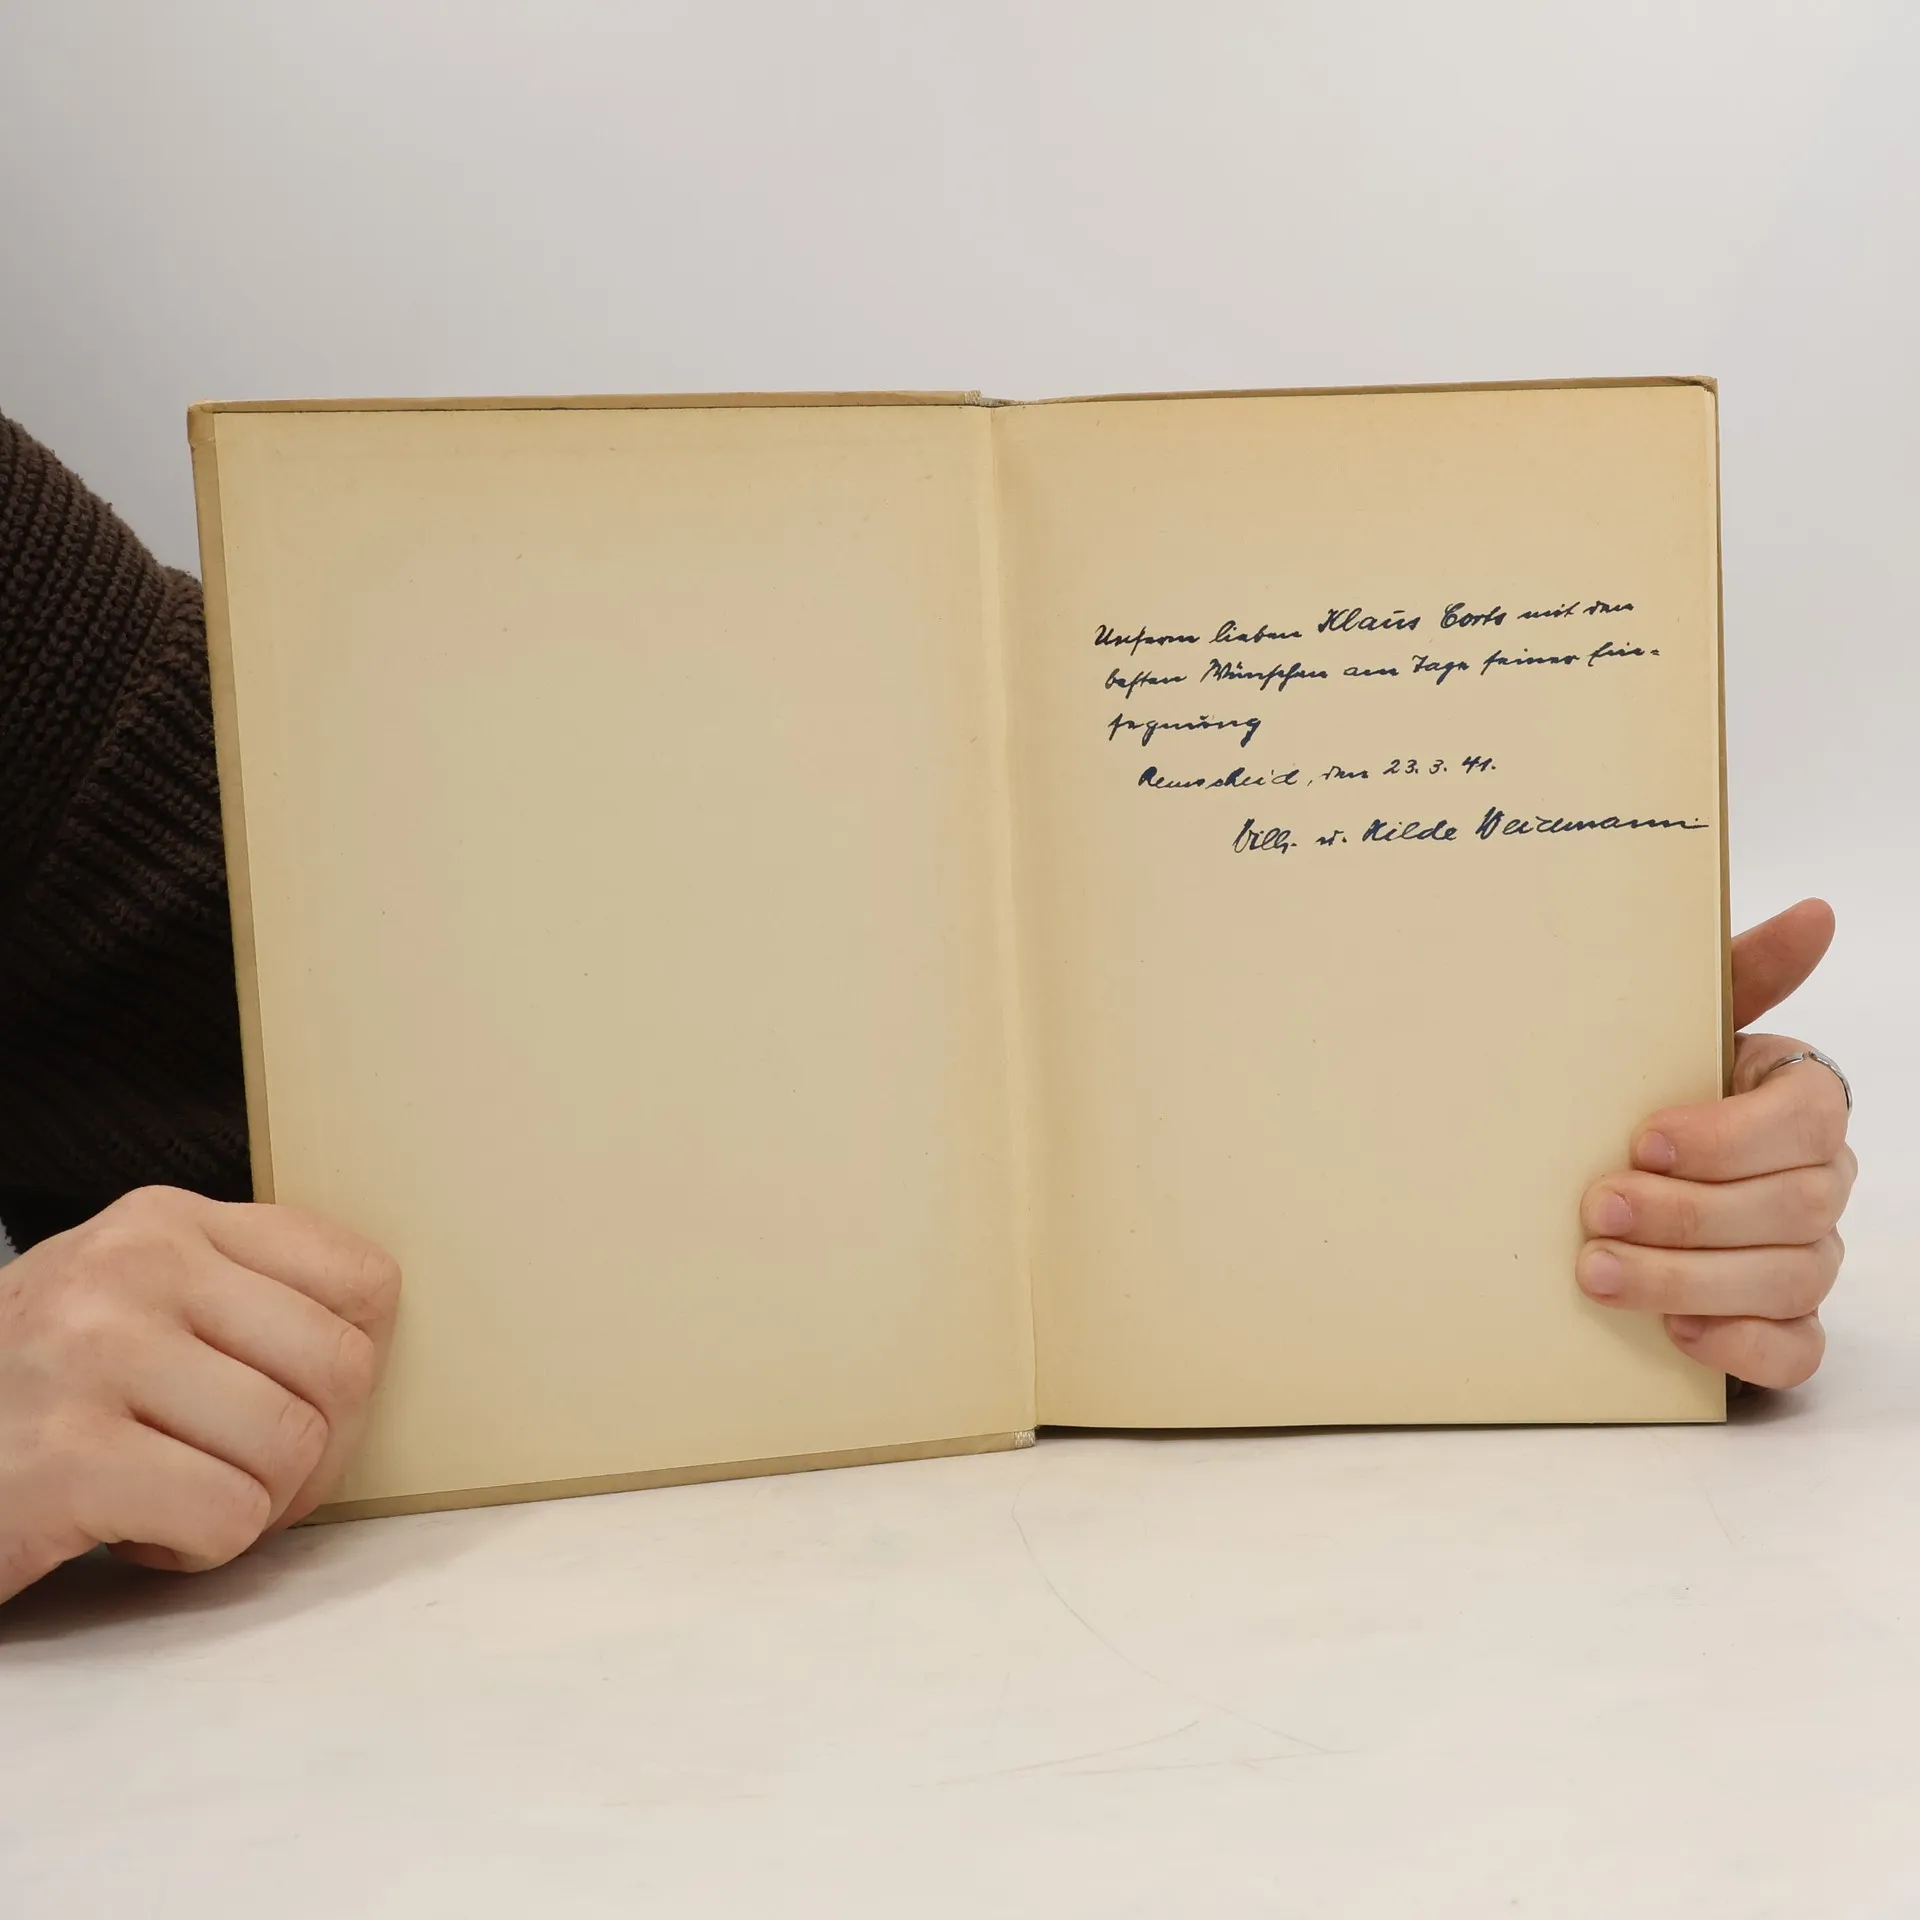 Unserm lieben Klaus Corts mit den
besten Wünschen am Tage seiner Ein-
segnung
Remscheid, den 23. 3. 41.
Willi u. Hilde Weidemann